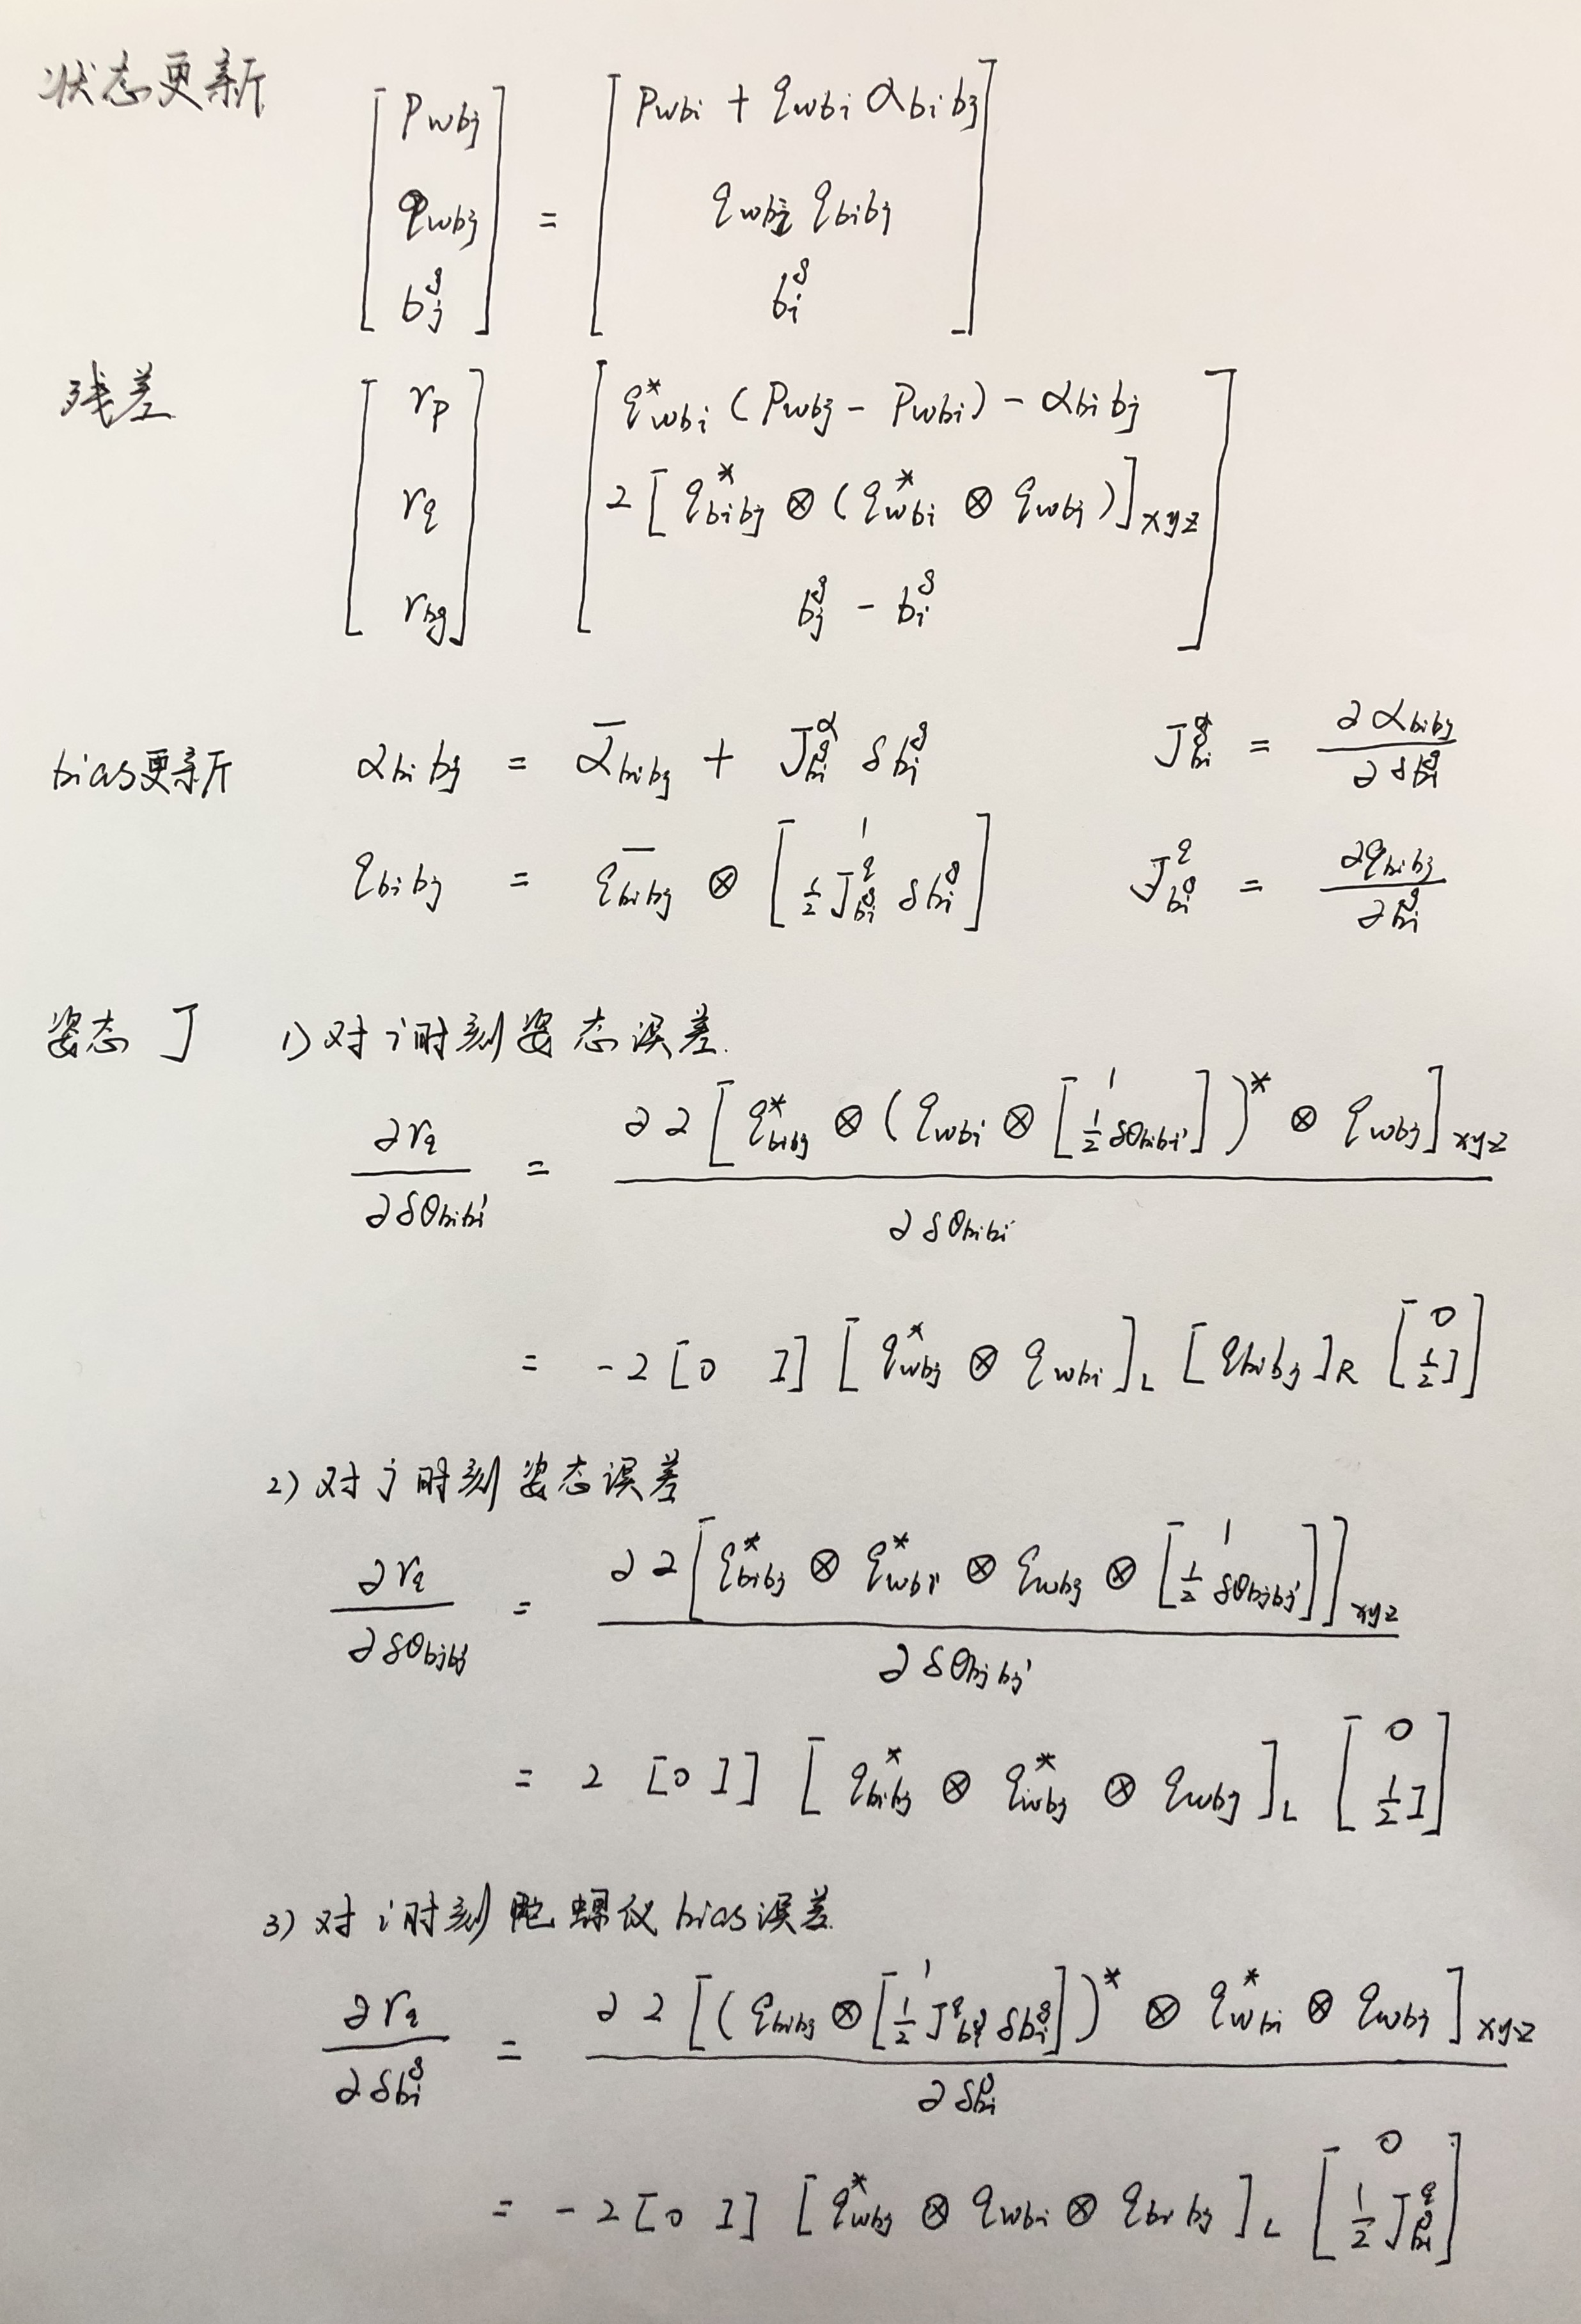 状态更新
[p_wbj; q_wbj; b_j^g] = [p_wbi + q_wbi α_bibj; q_wbi q_bibj; b_i^g]
残差 [r_p; r_q; r_bg] = [q*_wbi (p_wbj - p_wbi) - α_bibj; 2[q*_bibj ⊗ (q*_wbi ⊗ q_wbj)]_xyz; b_j^g - b_i^g]
bias更新 α_bibj = ᾱ_bibj + J^α_{b_i^g} δb_i^g J^α_{b_i^g} = ∂α_bibj / ∂δb_i^g
q_bibj = q̄_bibj ⊗ [1; ½ J^q_{b_i^g} δb_i^g] J^q_{b_i^g} = ∂q_bibj / ∂b_i^g
姿态 J 1) 对 i 时刻姿态误差.
∂r_q / ∂δθ_bibi' = ∂2[q*_bibj ⊗ (q_wbi ⊗ [1; ½ δθ_bibi'])* ⊗ q_wbj]_xyz / ∂δθ_bibi'
= -2 [0 I] [q*_wbj ⊗ q_wbi]_L [q_bibj]_R [0; ½I]
2) 对 j 时刻姿态误差
∂r_q / ∂δθ_bjbj' = ∂2[q*_bibj ⊗ q*_wbi ⊗ q_wbj ⊗ [1; ½ δθ_bjbj']]_xyz / ∂δθ_bjbj'
= 2 [0 I] [q*_bibj ⊗ q*_wbj ⊗ q_wbj]_L [0; ½I]
3) 对 i 时刻陀螺仪 bias 误差
∂r_q / ∂δb_i^g = ∂2[(q_bibj ⊗ [1; ½ J^q_{b_i^g} δb_i^g])* ⊗ q*_wbi ⊗ q_wbj]_xyz / ∂δb_i^g
= -2 [0 I] [q*_wbj ⊗ q_wbi ⊗ q_bibj]_L [0; ½ J^q_{b_i^g}]